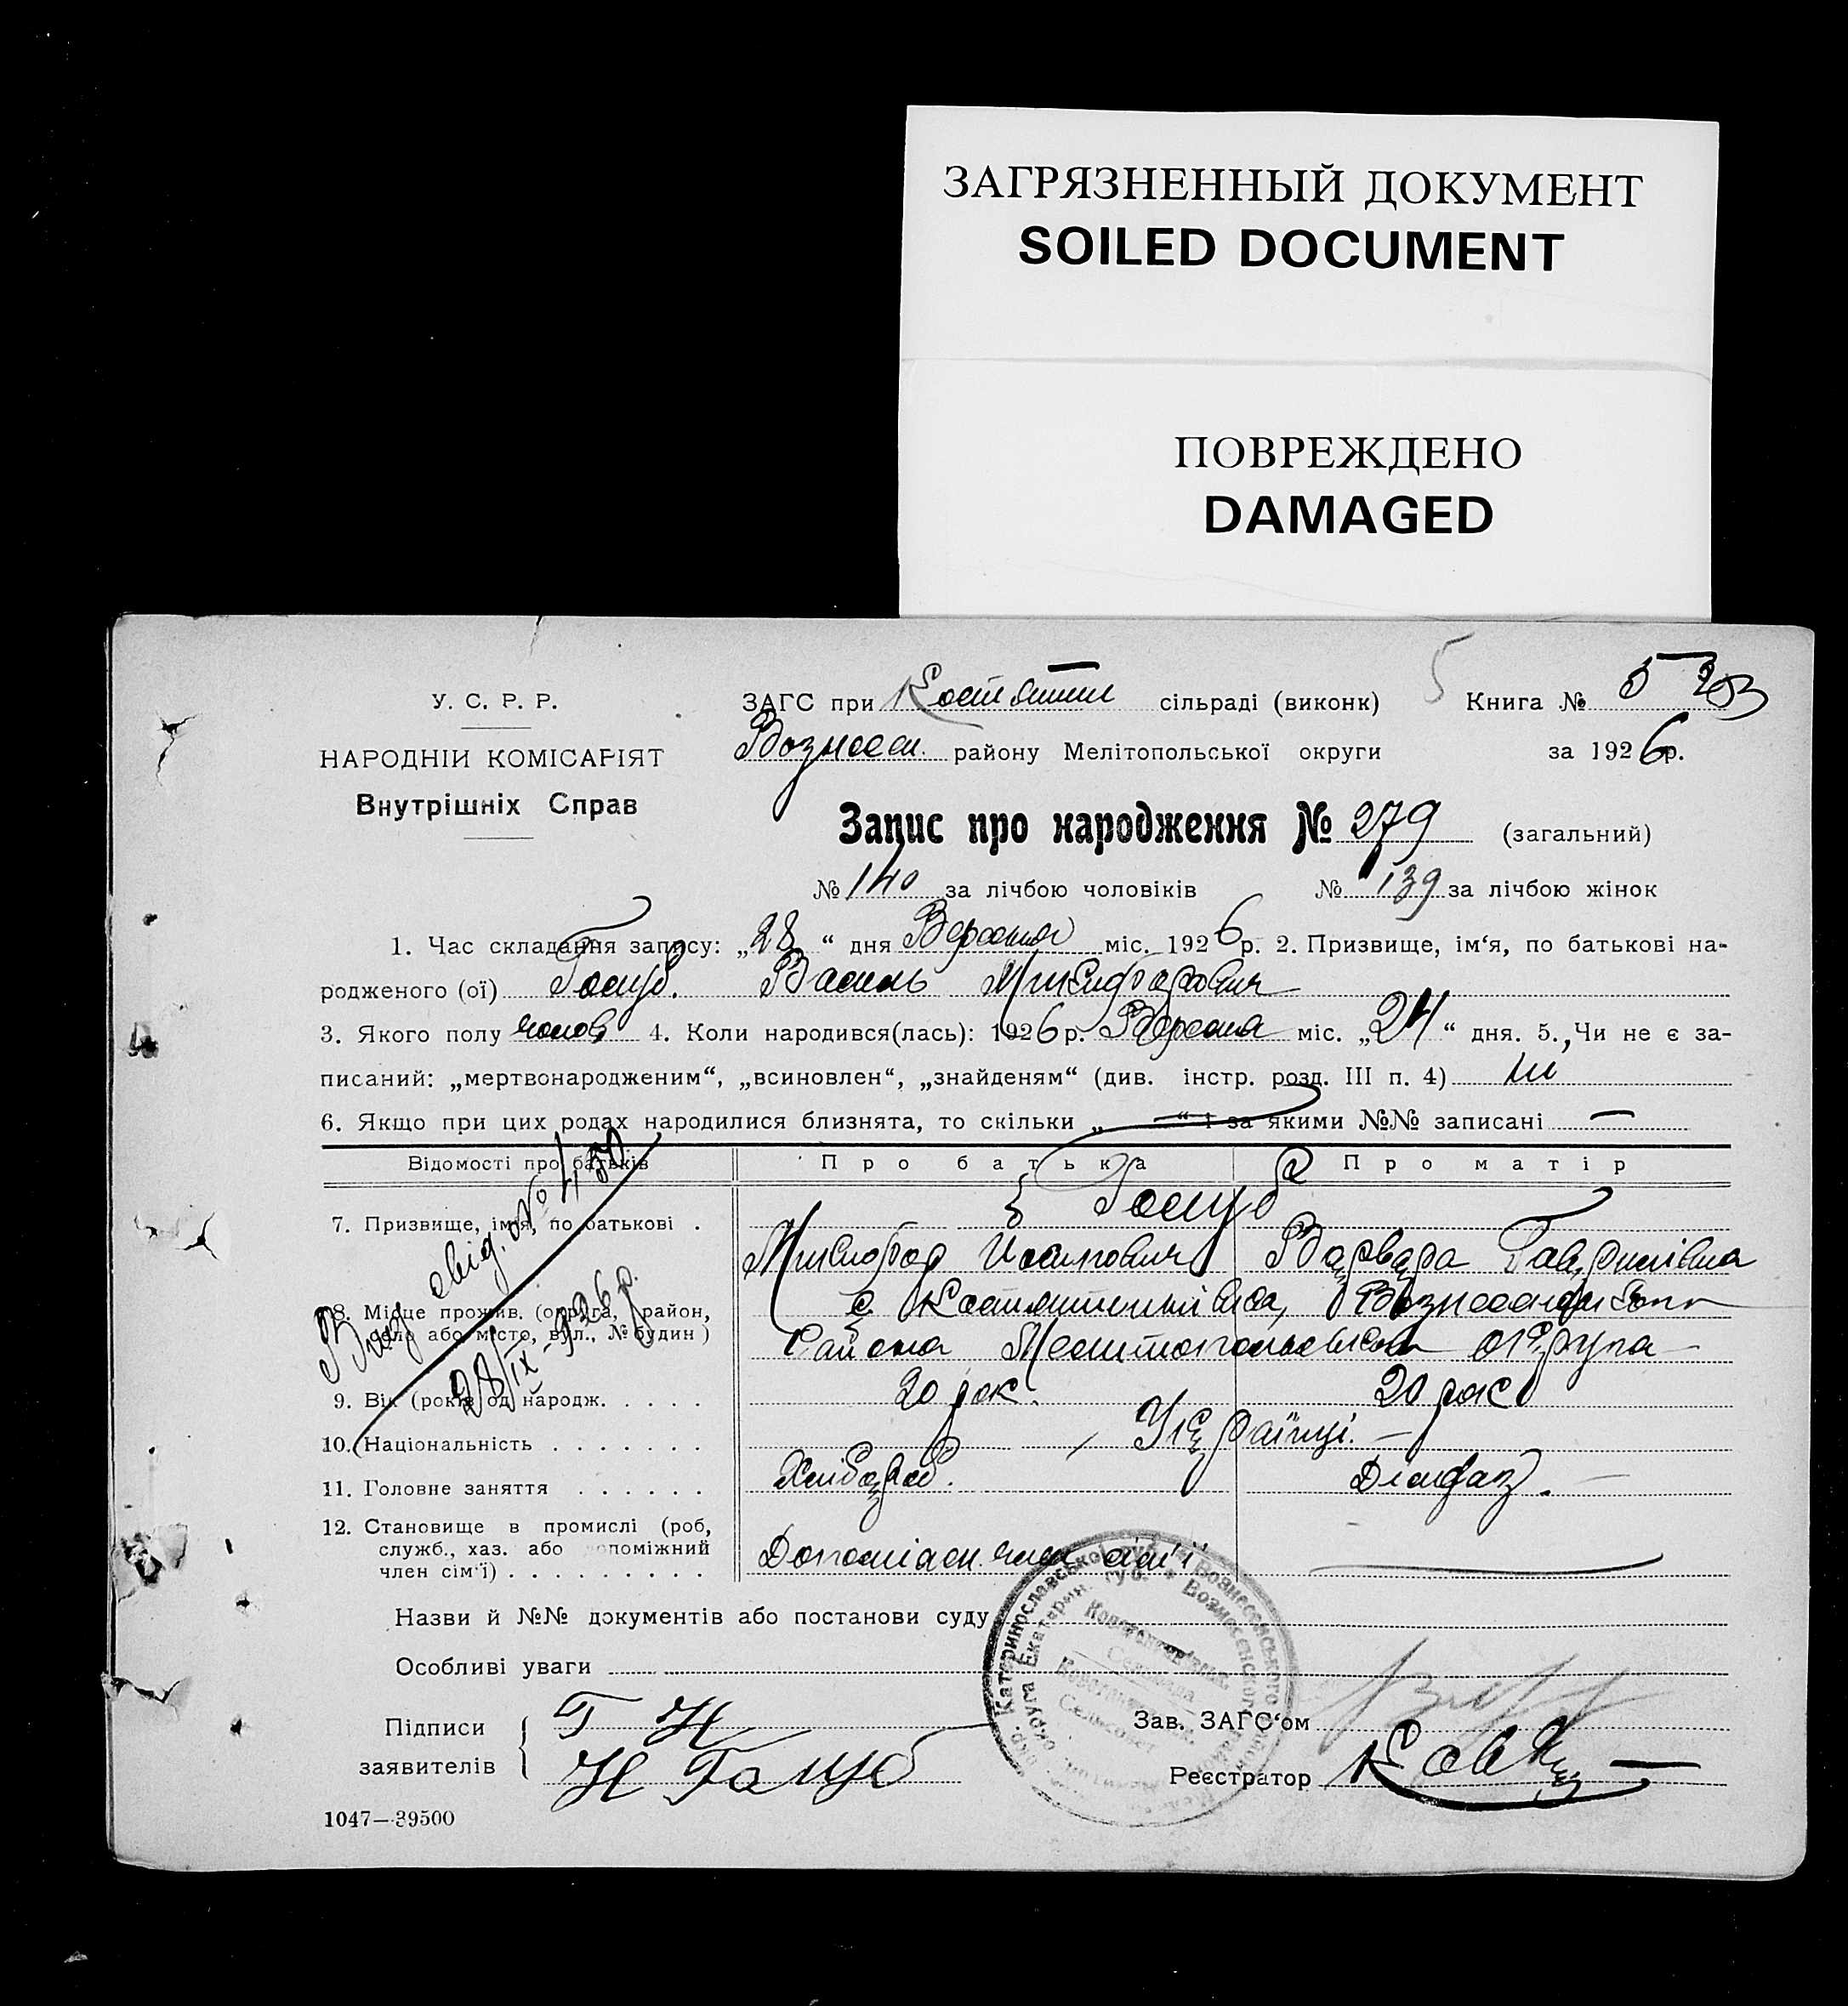 ЗАГРЯЗНЕННЫЙ ДОКУМЕНТ
SOILED DOCUMENT
ПОВРЕЖДЕНО
DAMAGED
У. С. Р. Р.
НАРОДНІЙ КОМІСАРІЯТ
Внутрішніх Справ
ЗАГС при сільраді (виконк) 5 Книга № 5
Вознесен. району Мелітопольської округи за 1926 р.
Запис про народження № 279 (загальний)
№ 140 за лічбою чоловіків № 139 за лічбою жінок
1. Час складання запису: „28“ дня Вересня міс. 1926 р. 2. Призвище, ім‘я, по батькові на-
родженого (ої) Голуб. Василь
3. Якого полу чолов 4. Коли народився(лась): 1926 р. Вересня міс. „24“ дня. 5. Чи не є за-
писаний: „мертвонародженим“, „всиновлен“, „знайденям“ (див. інстр. розд. III п. 4) ні
6. Якщо при цих родах народилися близнята, то скільки „ — “ і за якими №№ записані —
Відомості про батьків Про батька Про матір
7. Призвище, ім‘я, по батькові . Голуб
Варвара Гаврилівна
8. Місце прожив. (округа, район,
село або місто, вул., № будин)
с
района округа
9. Вік (років од народж. . . . . 20 рок. 20 рок
10. Національність . . . . . . . Українці. —
11. Головне заняття . . . . . . Хлібороб.
12. Становище в промислі (роб,
служб., хаз. або допоміжний
член сім‘ї) . . . . . . . . .
член сім'ї
Вид. свід. № 450
28/IX-926 р.
Назви й №№ документів або постанови суду
Особливі уваги
Підписи
заявителів
Г Н
Н Голуб
Зав. ЗАГС‘ом
Реєстратор
1047—39500